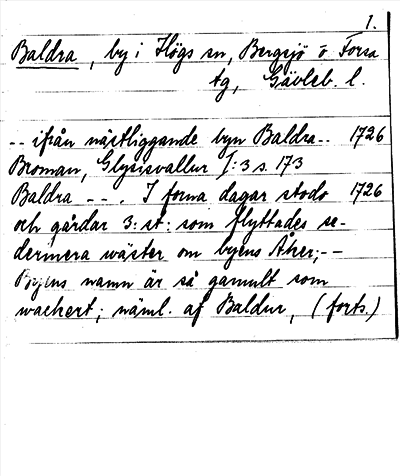 1.
Baldra, by i Högs sn, Bergsjö o Forsa
tg, Gävleb. l.
-- ifrån nästliggande byn Baldra-- 1726
Broman, Glysisvallur I:3 s. 173
Baldra -- . I forna dagar stodo 1726
och gårdar 3: st: som flyttades se-
dermera wäster om byens Åker; --
Byens namn är så gamult som
wackert; näml. af Baldur, (forts.)